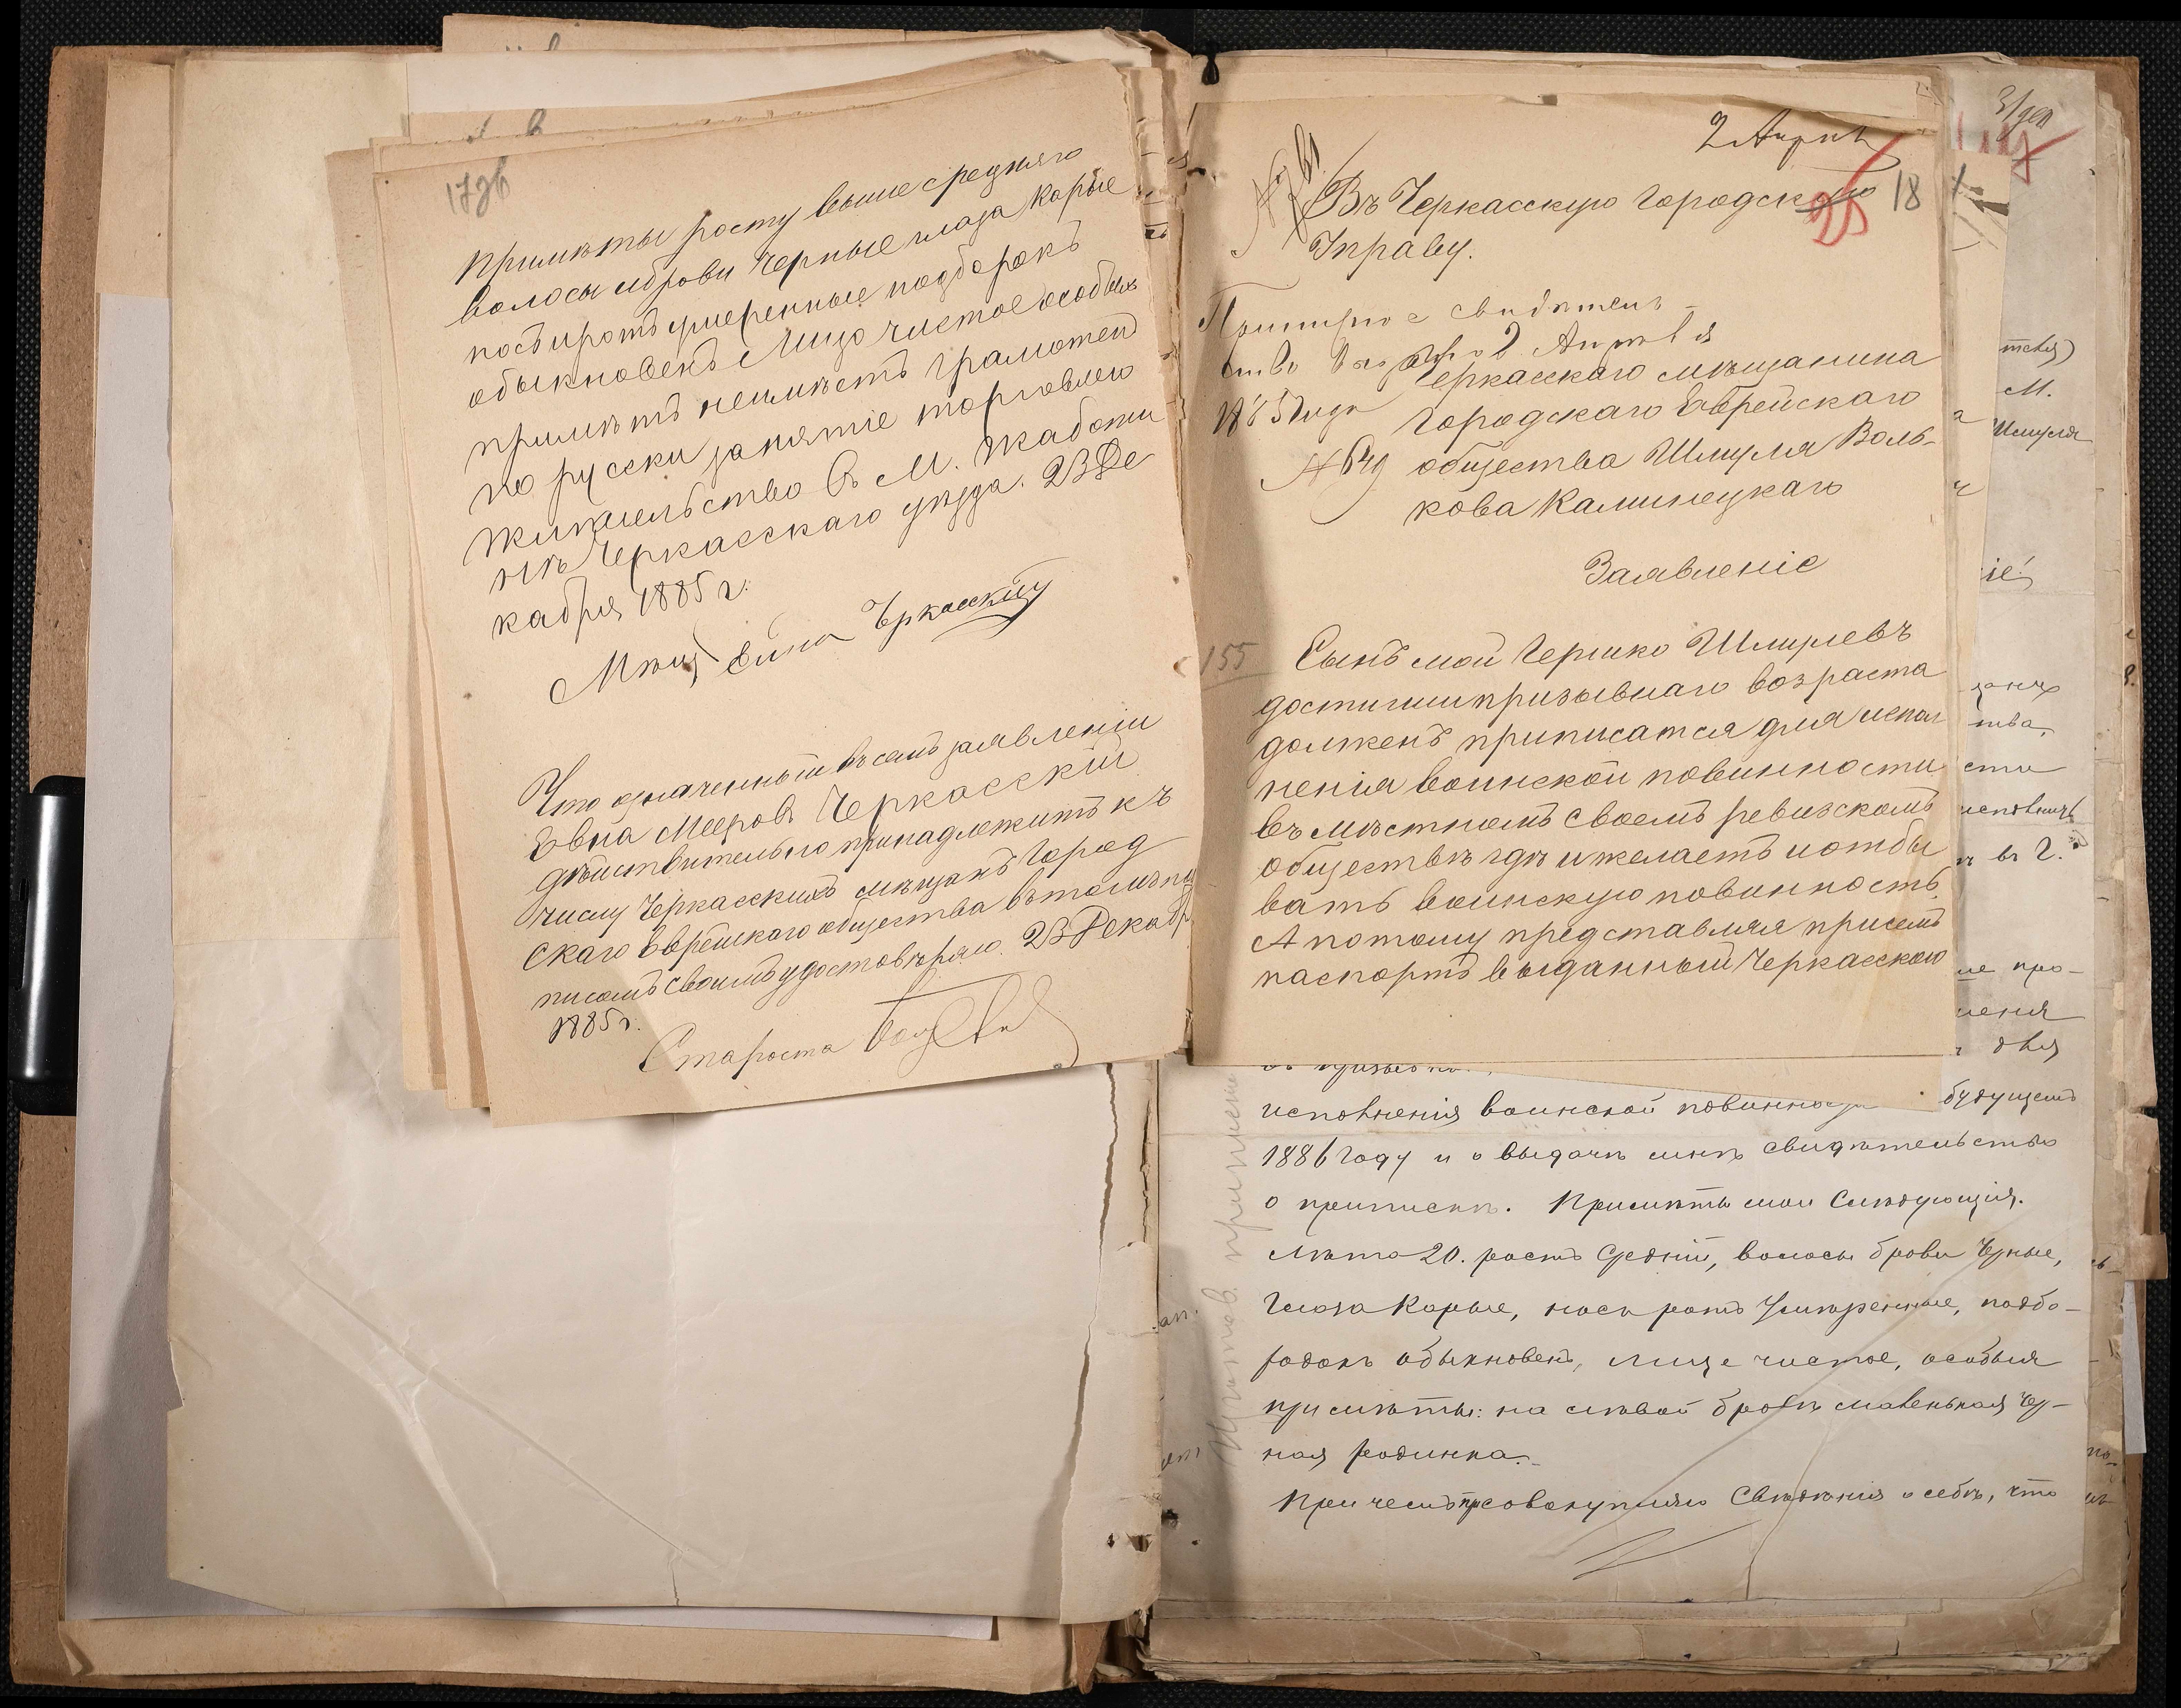 17зв
Примѣты росту выше средняго
волосы и брови черные глаза карые
носъ и ротъ умеренные подборокъ
обыкновенъ Лицо чистое особых
примѣтъ неимѣетъ грамотен
по русски занятіе торговлею
жительство в М. Жаботи
нѣ Черкасскаго уѣзда. 23 Де
кабря 1885 г.
Мѣщ Евна Черкасскій
Что означенный въ семъ заявленіи
Евна Мееровъ Черкасскій
дѣйствительно принадлежитъ къ
числу Черкасскихъ мѣщанъ Город
скаго Еврейскаго общества въ томъ по
писомъ своимъ удостовѣряю. 23 Декабр
1885 г.
Староста
2 Апрѣл
18
Въ Черкасскую Городскую
Управу.
свидѣтель
ство 2 Апрѣля
1885 года
№ 649
Черкасскаго мѣщанина
Городскаго Еврейскаго
общества Шмуля Воль-
кова Каминецкаго
Заявленіе
155
Сынъ мой Гершко Шмулевъ
достигши призывнаго возраста
долженъ приписатся для испол
ненія воинской повинности
въ мѣстномъ своемъ ревизскомъ
обществѣ гдѣ и желаетъ и отбы
вать воинскую повинность.
А потому представляя присемъ
паспортъ выданный Черкасскою
исполненія воинской повинности будущемъ
1886 году и о выдачѣ мнѣ свидѣтельство
о припискѣ. Примѣты мои Слѣдующія.
Лѣта 20. ростъ Средній, волосы брови Черные,
Глаза Карые, носъ ротъ Умѣренные, подбо-
родокъ обыкновенъ, лице чистое, особыя
примѣты: на лѣвой бровѣ маленькая Чер-
ная родинка.
При чемъ присовокупляю Свѣдѣнія о себѣ, что